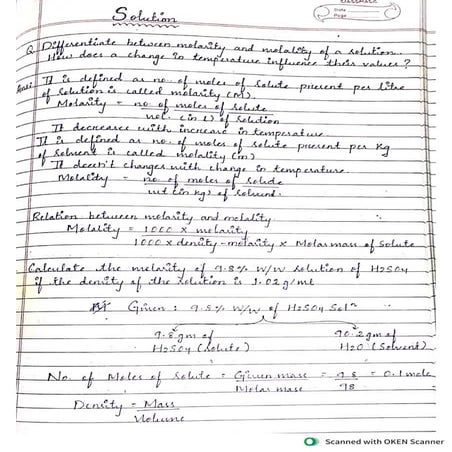 Date
Page
Solution
Q. Differentiate between molarity and molality of a solution.
How does a change in temperature influence their values?
Ans: It is defined as no. of moles of solute present per litre
of solution is called molarity (M).
Molarity = no. of moles of solute
vol. (in L) of solution
It decreases with increase in temperature.
It is defined as no. of moles of solute present per kg
of solvent is called molality (m)
It doesn't changes with change in temperature.
Molality = no of moles of solute
wt (in kg) of solvent.
Relation between molarity and molality
Molality = 1000 × molarity
1000 × density - molarity × Molar mass of solute
Calculate the molarity of 9.8% w/w solution of H2SO4
if the density of the solution is 1.02 g/ml
Given: 9.8% w/w of H2SO4 Solⁿ
9.8 gm of 90.2 gm of
H2SO4 (solute) H2O (Solvent)
No. of Moles of Solute = Given mass = 9.8 = 0.1 mole
Molar mass 98
Density = Mass
Volume
Scanned with OKEN Scanner